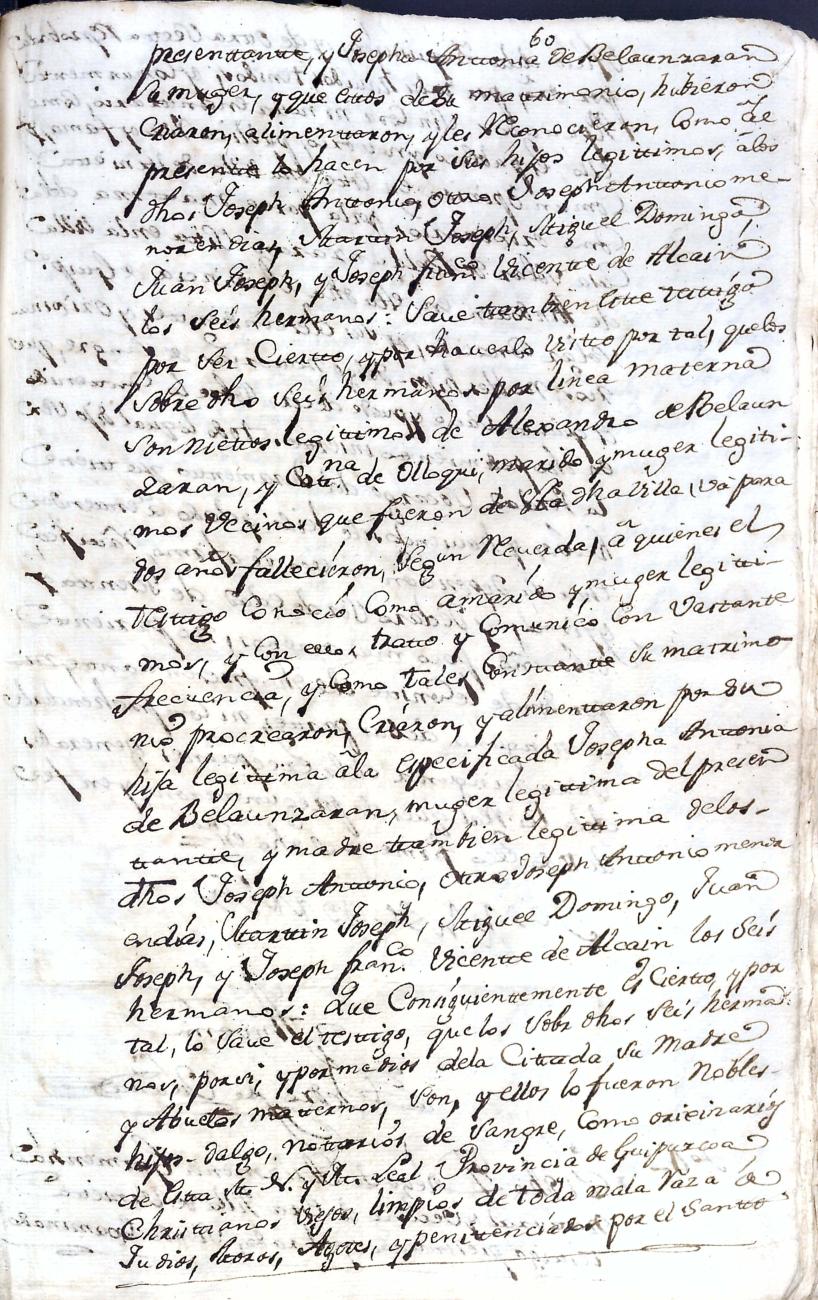 60
presenttantte, y Josepha Anttonia de Belaunzaran
su muger, y que estos de su mattrimonio, hubieron
Criaron, alimenttaron, y les Reconocieron, como âl
presentte lo hacen por sus hijos legittimos, âlos
dhos Joseph Anttonio, ottro Joseph Anttonio me-
nor en dias, Marttin Joseph, Miguel Domingo,
Juan Joseph, y Joseph franco. Vicentte de Alcain
los Seis hermanos: Save ttambien estte testtigo
por ser Ciertto, y por haverlo visto por tal, que los
sobre dho seis hermanos por linea materna
son Niettos legittimos de Alexandro de Belaun
zaran, y Catt.na de Olloqui, marido y muger legiti-
mos Vecinos que fueron de estta dha Villa, ya para
dos años fallecieron, segun Recuerda, â quienes el
testtigo Conoció Como a marido y muger legitti-
mos, y con ellos tratto y Comunicó con Vastante
frecuencia, y Como tales Constantte su matrimo
nio procrearon, Criaron, y alimenttaron por su
hija legittima âla especificada Josepha Anttonia
de Belaunzaran, muger legittima del presen
ttantte, y madre ttambien legittima delos-
dhos Joseph Anttonio, ottro Joseph Anttonio menor
en dias, Marttin Joseph, Miguel Domingo, Juan
Joseph, y Joseph franco. Vicentte de Alcain los Seis
hermanos: Que Consiguientemente es Ciertto, y por
tal, lo Save el testtigo, que los sobre dhos seis herma-
nos, por si, y por medios dela Cittada su Madre
y Abuelos matternos, son, y ellos lo fueron Nobles-
hijos-dalgo, nottarios de sangre, como originarios
de estta M. N. y M. Leal Provincia de Guipuzcoa
Christtianos viejos, limpios de toda mala raza de
Judios, Moros, Agotes, y penitenciados por el Santto